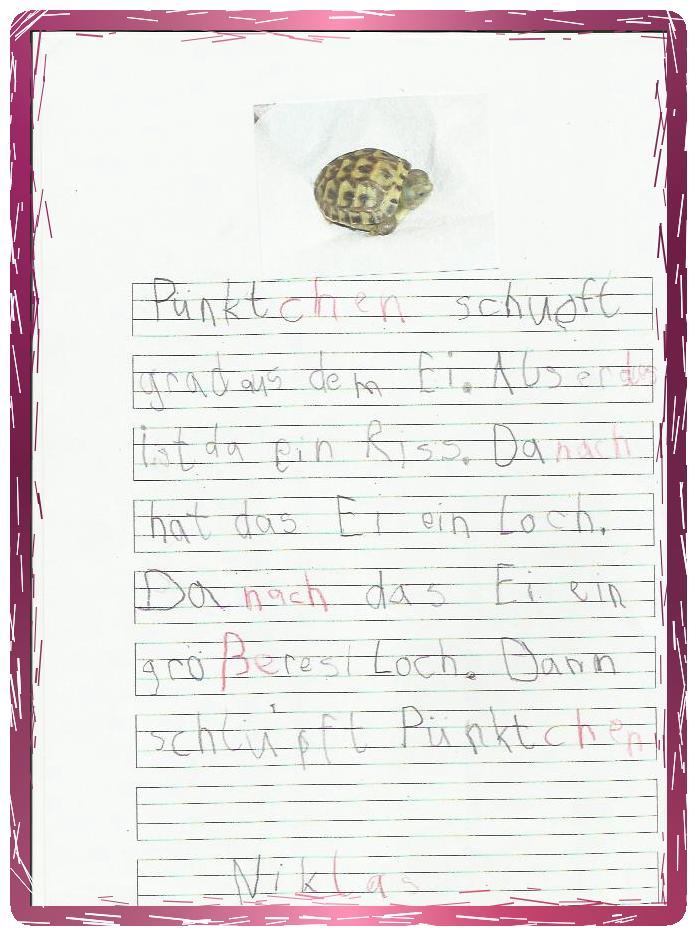 Pünktchen schupft
grad aus dem Ei. Als er das
ist da ein Riss. Danach
hat das Ei ein Loch.
Danach das Ei ein
größeres Loch. Dann
schlüpft Pünktchen
Niklas